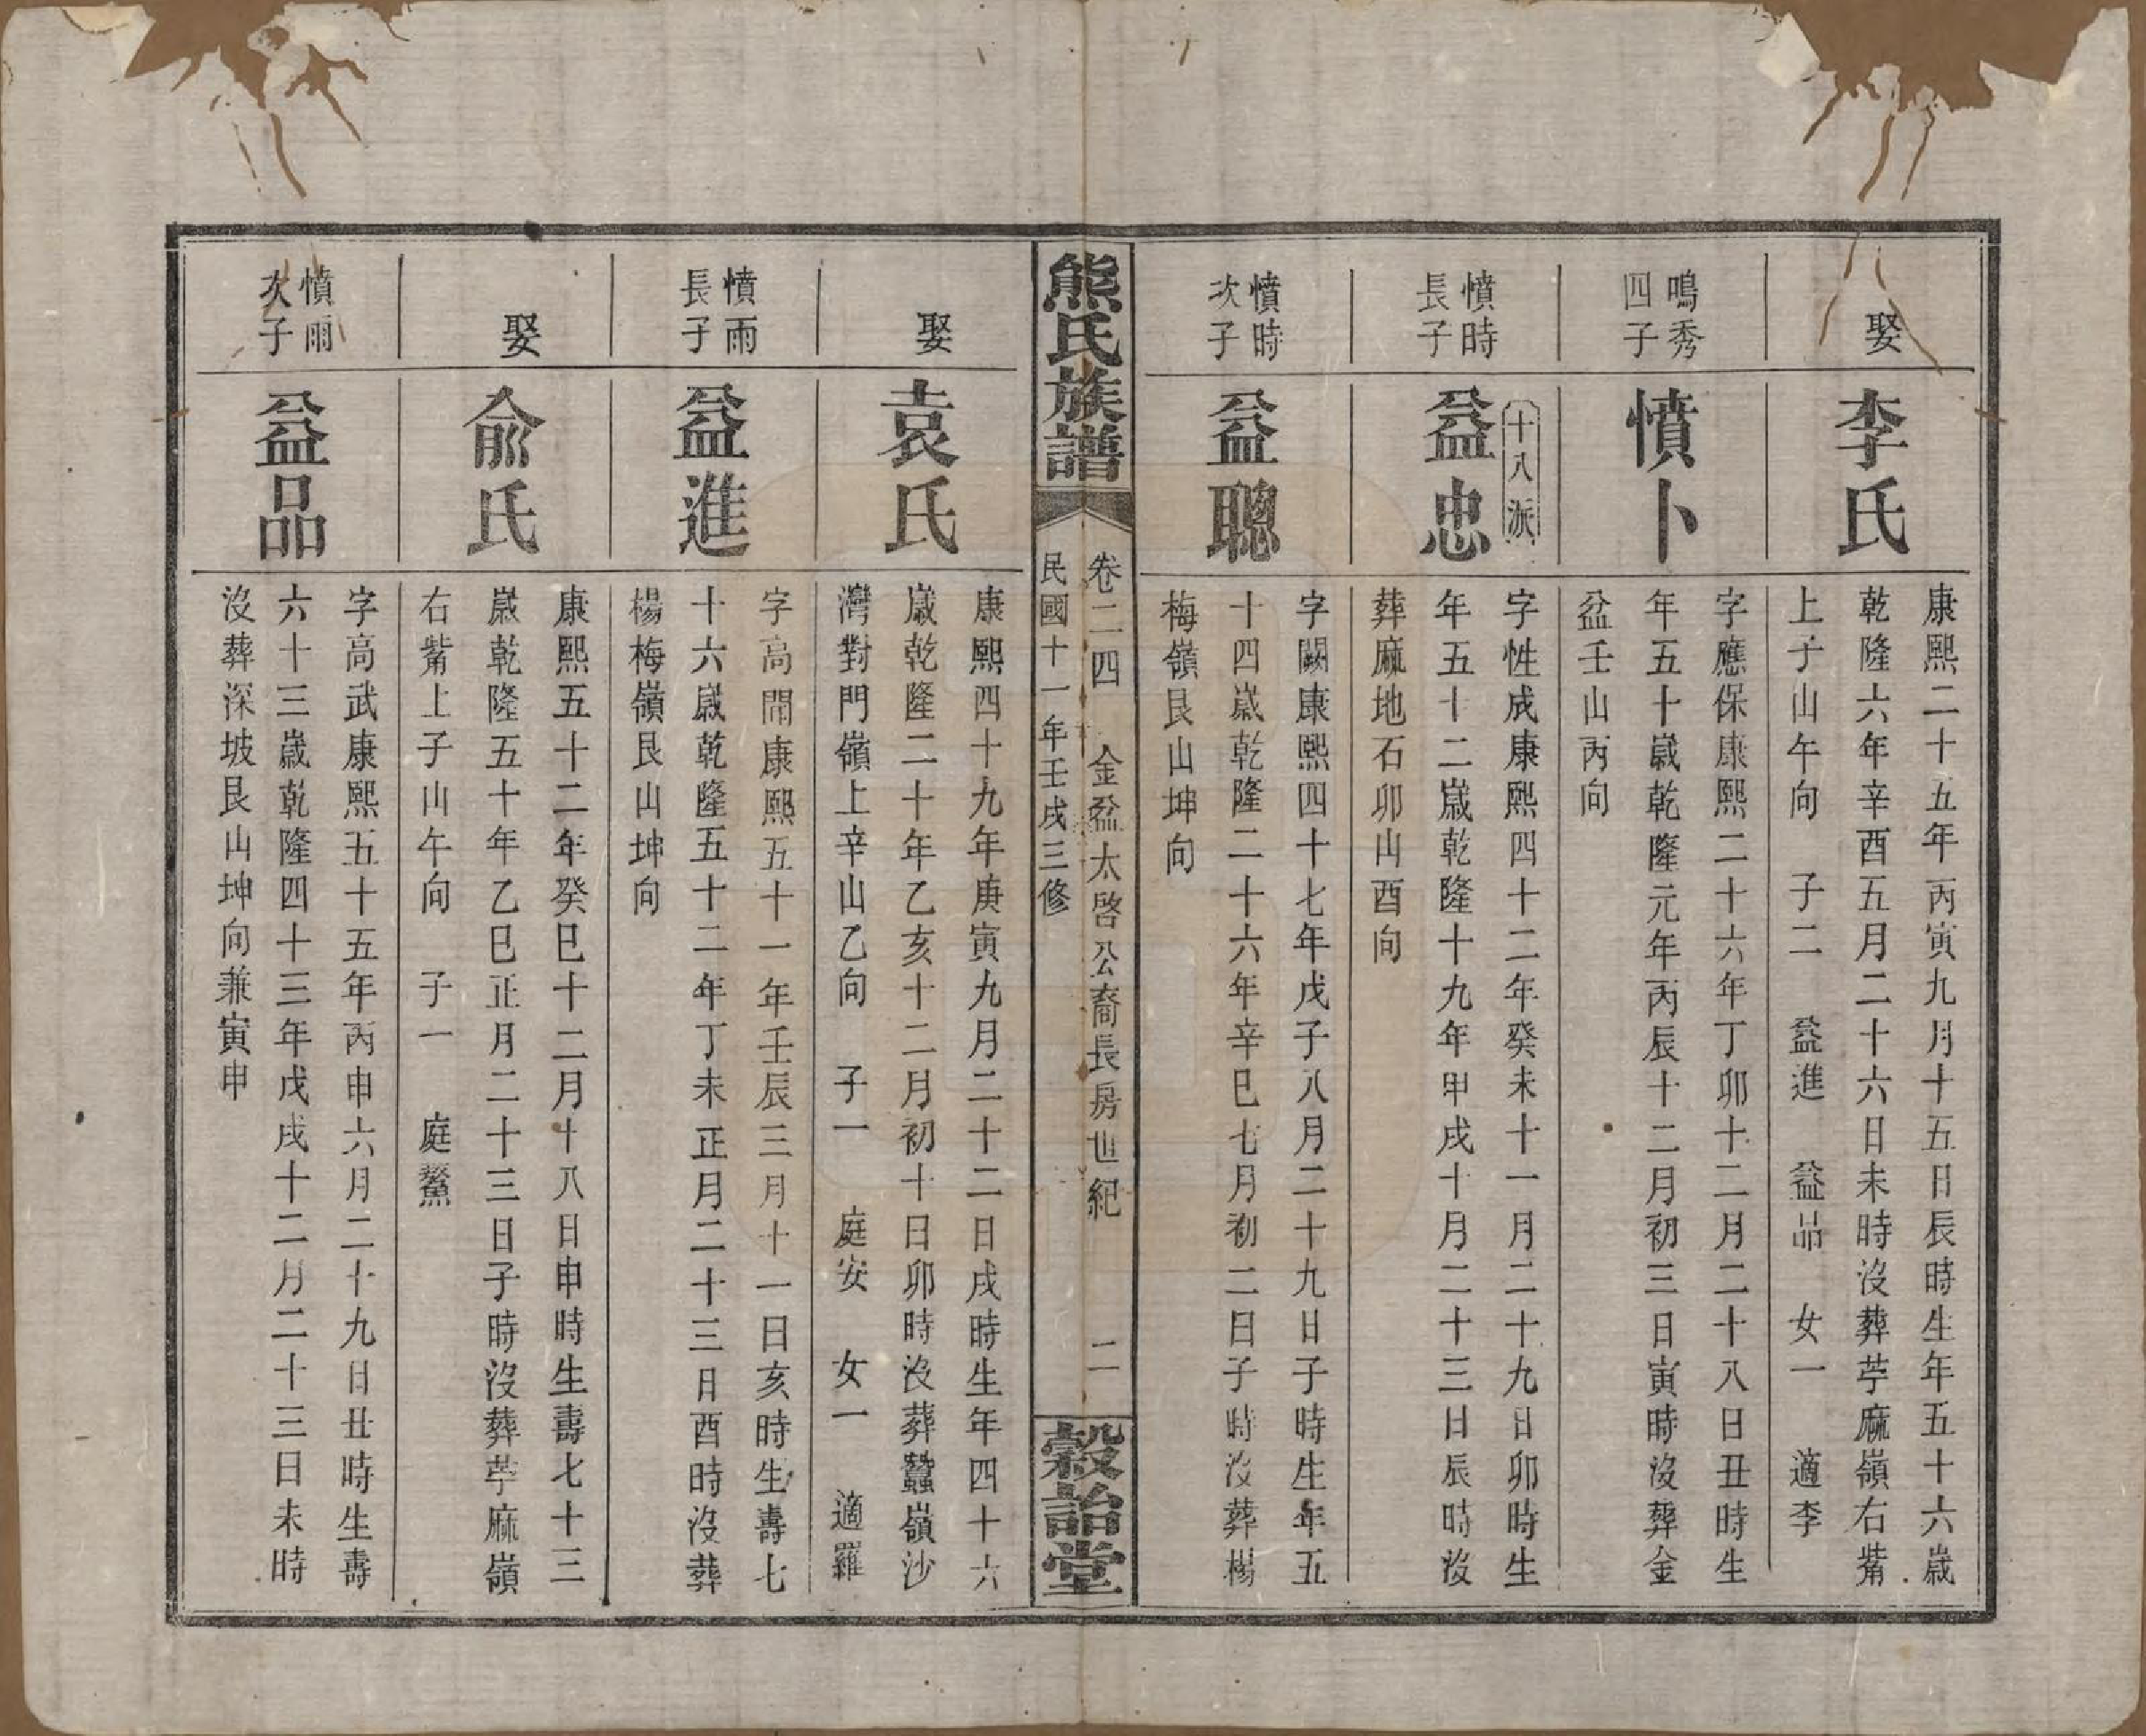 娶
李氏
康熙二十五年丙寅九月十五日辰時生年五十六歲
乾隆六年辛酉五月二十六日未時沒葬苧麻嶺右觜
上子山午向　子二　益進　益品　女一　適李
鳴秀
四子
憤卜
字應保康熙二十六年丁卯十二月二十八日丑時生
年五十歲乾隆元年丙辰十二月初三日寅時沒葬金
盆壬山丙向
十八派
憤時
長子
益忠
字性成康熙四十二年癸未十一月二十九日卯時生
年五十二歲乾隆十九年甲戌十月二十三日辰時沒
葬麻地石卯山酉向
憤時
次子
益聰
字闕康熙四十七年戊子八月二十九日子時生年五
十四歲乾隆二十六年辛巳七月初二日子時沒葬楊
梅嶺艮山坤向
熊氏族譜
卷二四　金盆太啓公裔長房世紀　二
民國十一年壬戌三修
穀詒堂
娶
袁氏
康熙四十九年庚寅九月二十二日戌時生年四十六
歲乾隆二十年乙亥十二月初十日卯時沒葬蠶嶺沙
灣對門嶺上辛山乙向　子一　庭安　女一　適羅
憤雨
長子
益進
字高開康熙五十一年壬辰三月十一日亥時生壽七
十六歲乾隆五十二年丁未正月二十三日酉時沒葬
楊梅嶺艮山坤向
娶
俞氏
康熙五十二年癸巳十二月十八日申時生壽七十三
歲乾隆五十年乙巳正月二十三日子時沒葬苧麻嶺
右觜上子山午向　子一　庭鰲
憤雨
次子
益品
字高武康熙五十五年丙申六月二十九日丑時生壽
六十三歲乾隆四十三年戊戌十二月二十三日未時
沒葬深坡艮山坤向兼寅申